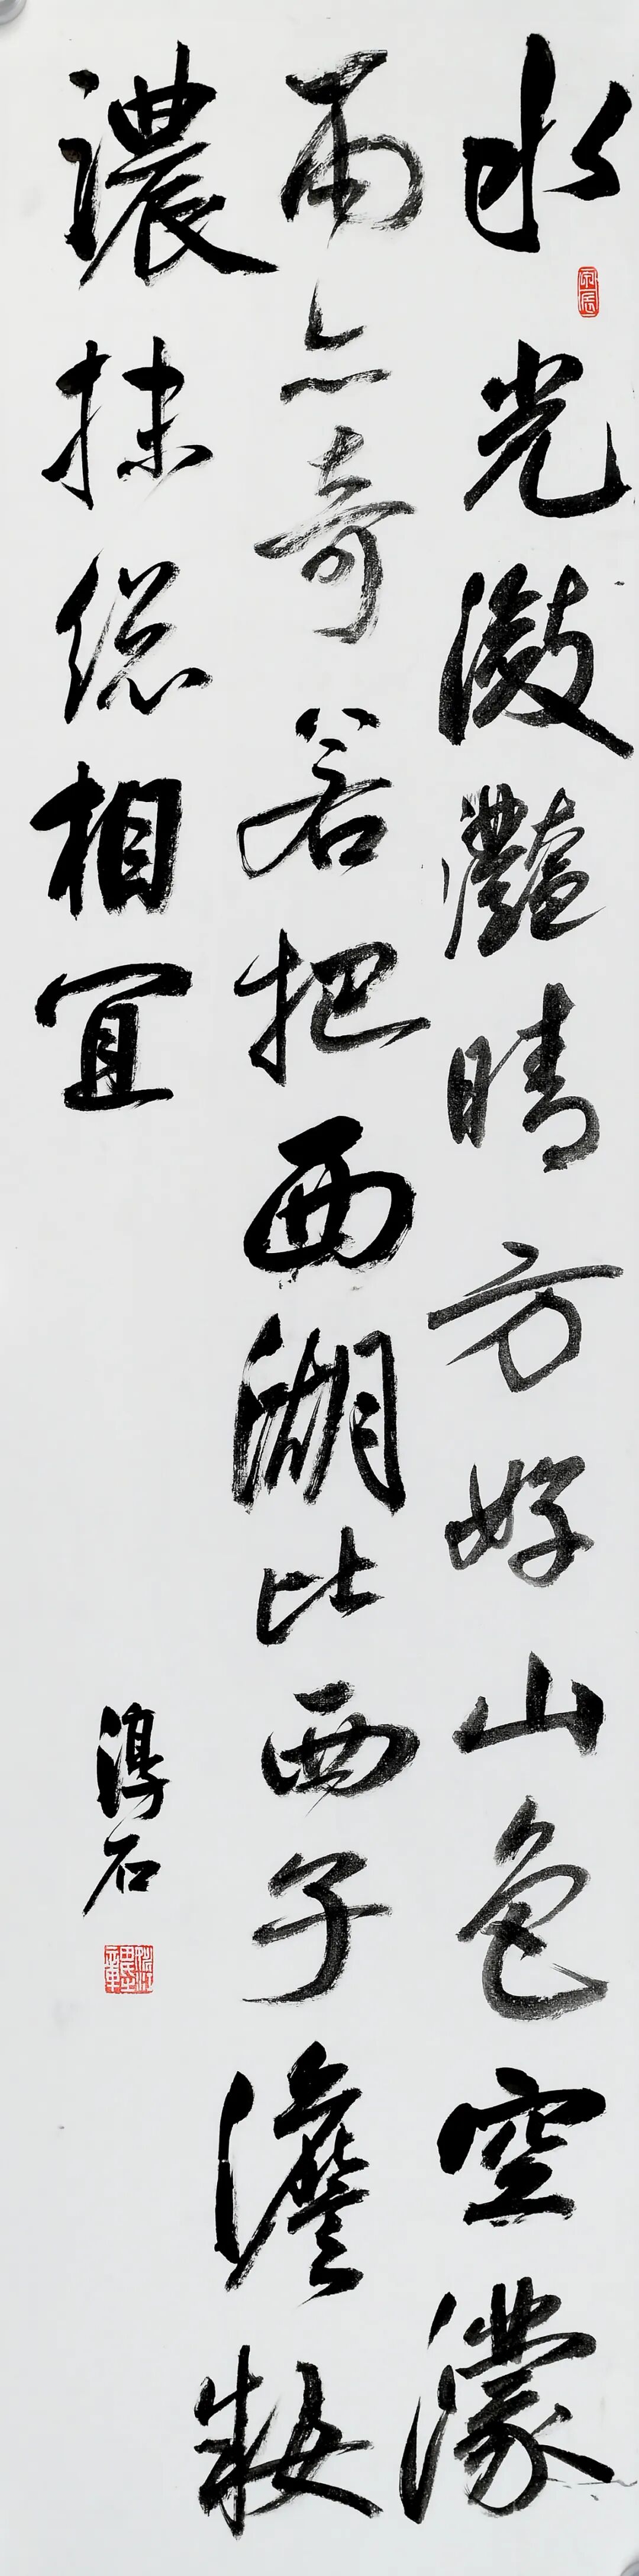 水光潋灔晴方好山色空濛
雨亦奇若把西湖比西子澹粧
濃抹総相宜
淳石